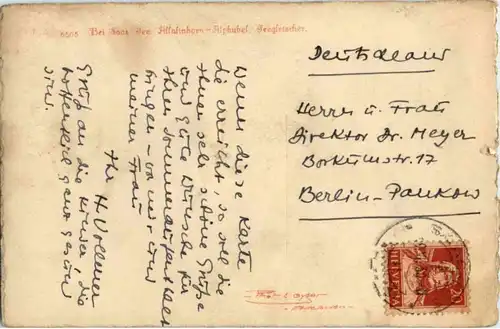 6605 Bei Saas den Allalinhorn-Alphubel. Feegletscher.
Wenn diese Karte
Sie erreicht, so soll sie
Ihnen sehr schöne Grüße
und gute Wünsche für
Ihren Sommeraufenthalt
bringen - von mir und
meiner Frau
Ihr
H. Vollmer
Gruß an die Kinder, die
hoffentlich ganz gesund
sind.
Deutschland
Herrn u. Frau
Direktor Dr. Meyer
Borkumstr. 17
Berlin-Pankow
HELVETIA
20